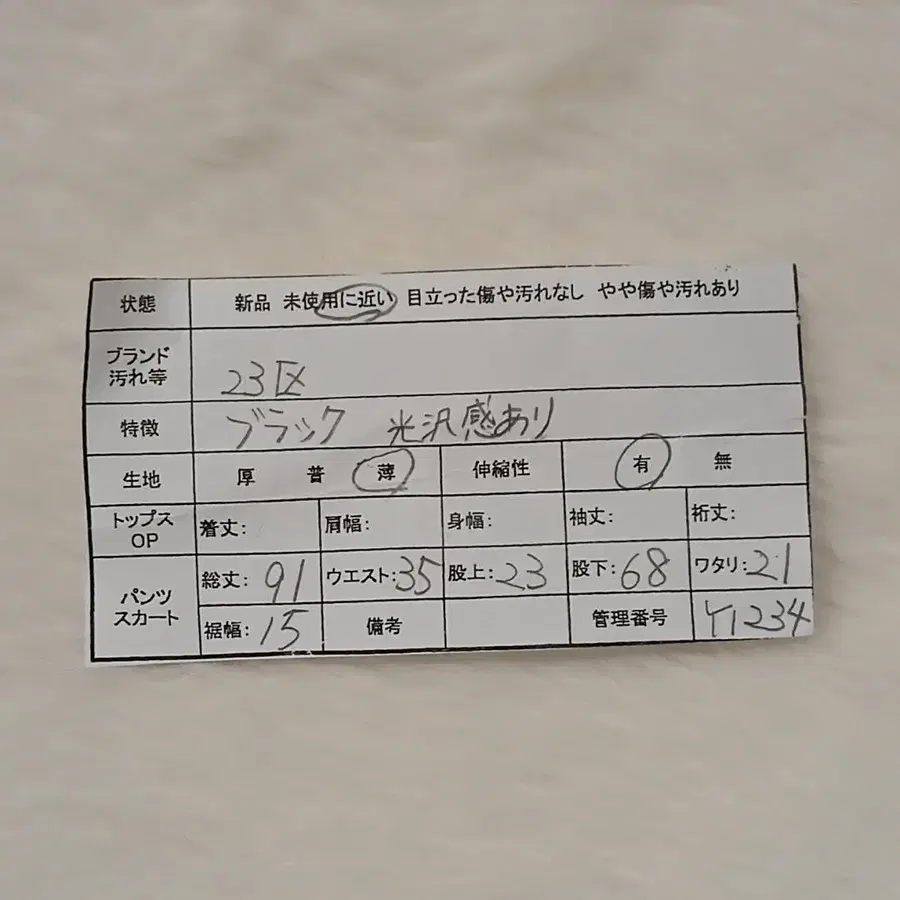 状態 新品 未使用に近い 目立った傷や汚れなし やや傷や汚れあり
ブランド
汚れ等 23区
特徴 ブラック 光沢感あり
生地 厚 普 薄 伸縮性 有 無
トップス
OP 着丈: 肩幅: 身幅: 袖丈: 裄丈:
パンツ
スカート 総丈: 91 ウエスト: 35 股上: 23 股下: 68 ワタリ: 21
裾幅: 15 備考 管理番号 Y1234